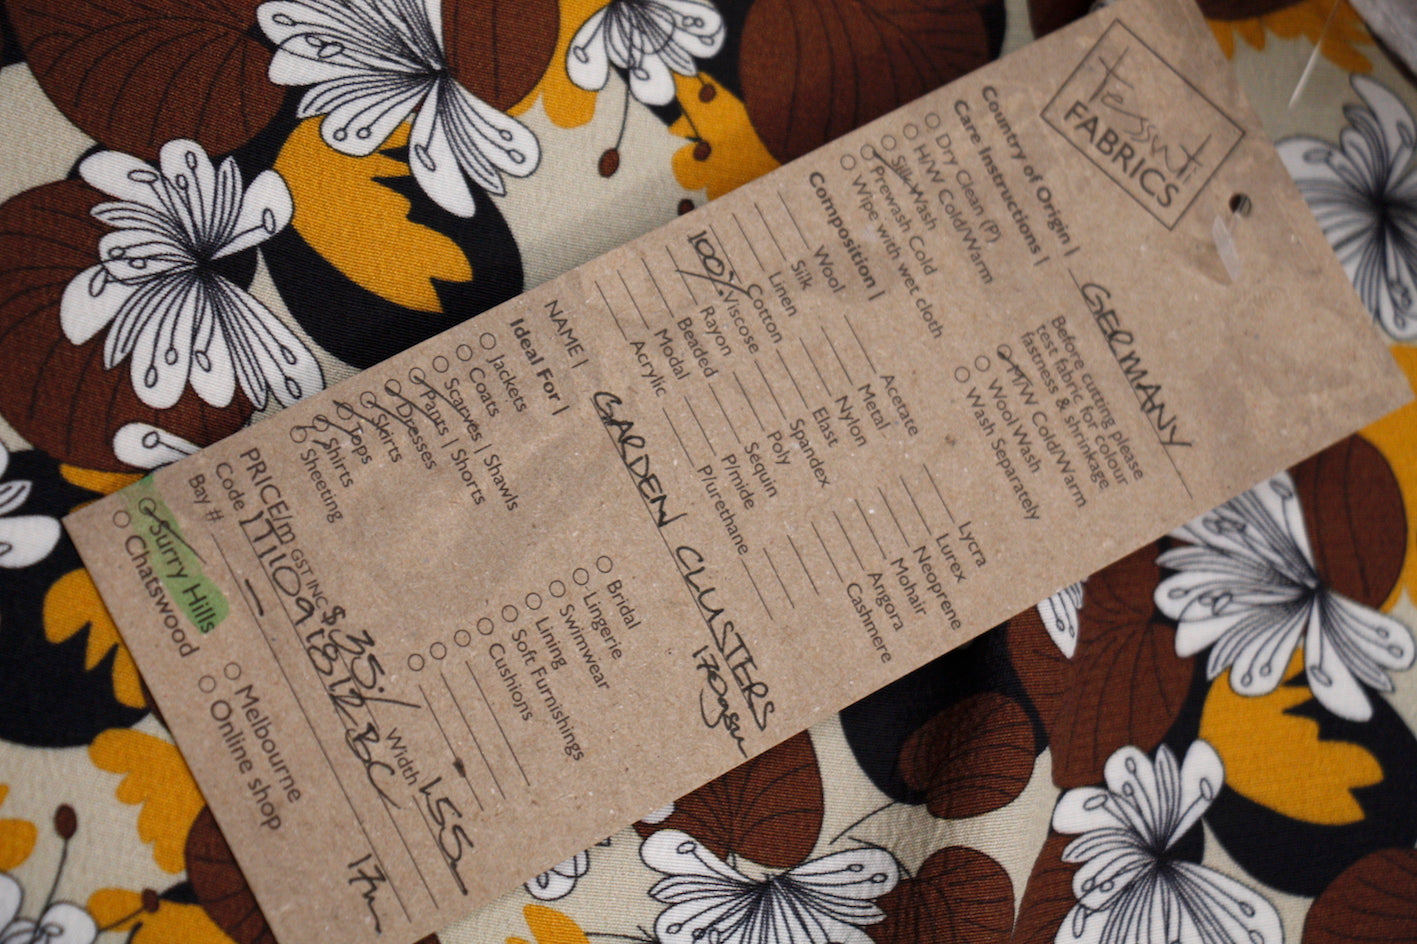 Tessuti
FABRICS
Country of Origin | GERMANY
Care Instructions |
Dry Clean (P)
H/W Cold/Warm
Silk Wash
Prewash Cold
Wipe with wet cloth
Before cutting please
test fabric for colour
fastness & shrinkage
M/W Cold/Warm
Wool Wash
Wash Separately
Composition |
Wool
Silk
Linen
Cotton
100% Viscose
Rayon
Beaded
Modal
Acrylic
Acetate
Metal
Nylon
Elast
Spandex
Poly
Sequin
P/mide
P/urethane
Lycra
Lurex
Neoprene
Mohair
Angora
Cashmere
NAME | GARDEN CLUSTERS
170gsm
Ideal For |
Jackets
Coats
Scarves | Shawls
Pants | Shorts
Dresses
Skirts
Tops
Shirts
Sheeting
Bridal
Lingerie
Swimwear
Lining
Soft Furnishings
Cushions
PRICE/m GST INC $ 35.- Width 155
Code
Bay # - 17m
Surry Hills
Chatswood
Melbourne
Online shop